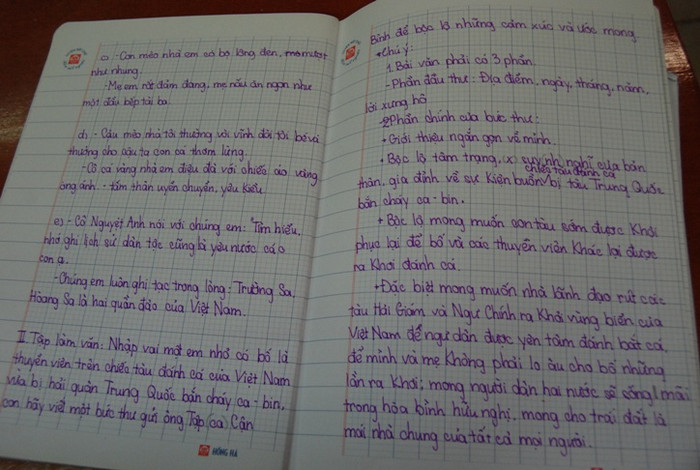 c) - Con mèo nhà em có bộ lông đen, mềm mượt
như nhung.
- Mẹ em rất đảm đang, mẹ nấu ăn ngon như
một đầu bếp tài ba.
d) - Cậu mèo nhà tôi thường vời vĩnh đòi tôi bế và
thưởng cho cậu ta con cá thơm lừng.
- Cô cá vàng nhà em điệu đà với chiếc áo vàng
óng ánh. - tấm thân uyển chuyển, yêu kiều.
e) - Cô Nguyệt Anh nói với chúng em: "Tìm hiểu,
nhớ ghi lịch sử dân tộc cũng là yêu nước các
con ạ.
- Chúng em luôn ghi tạc trong lòng: Trường Sa,
Hoàng Sa là hai quần đảo của Việt Nam.
II Tập làm văn: Nhập vai một em nhỏ có bố là
thuyền viên trên chiếc tàu đánh cá của Việt Nam
vừa bị hải quân Trung Quốc bắn cháy ca-bin,
con hãy viết một bức thư gửi ông Tập Cận
HỒNG HÀ
Bình để bộc lộ những cảm xúc và ước mong
* Chú ý:
1. Bài văn phải có 3 phần.
- Phần đầu thư: Địa điểm, ngày, tháng, năm,
lời xưng hô
2. Phần chính của bức thư:
+ Giới thiệu ngắn gọn về mình.
+ Bộc lộ tâm trạng, suy nghĩ của bản
thân, gia đình về sự kiện buồn chiếc tàu đánh cá bị tàu Trung Quốc
bắn cháy ca-bin.
+ Bộc lộ mong muốn con tàu sớm được khôi
phục lại để bố và các thuyền viên khác lại được
ra khơi đánh cá.
+ Đặc biệt mong muốn nhà lãnh đạo rút các
tàu Hải Giám và Ngư Chính ra khỏi vùng biển của
Việt Nam để ngư dân được yên tâm đánh bắt cá,
để mình và mẹ không phải lo âu cho bố những
lần ra khơi; mong người dân hai nước sẽ sống mãi
trong hòa bình hữu nghị, mong cho trái đất là
mái nhà chung của tất cả mọi người.